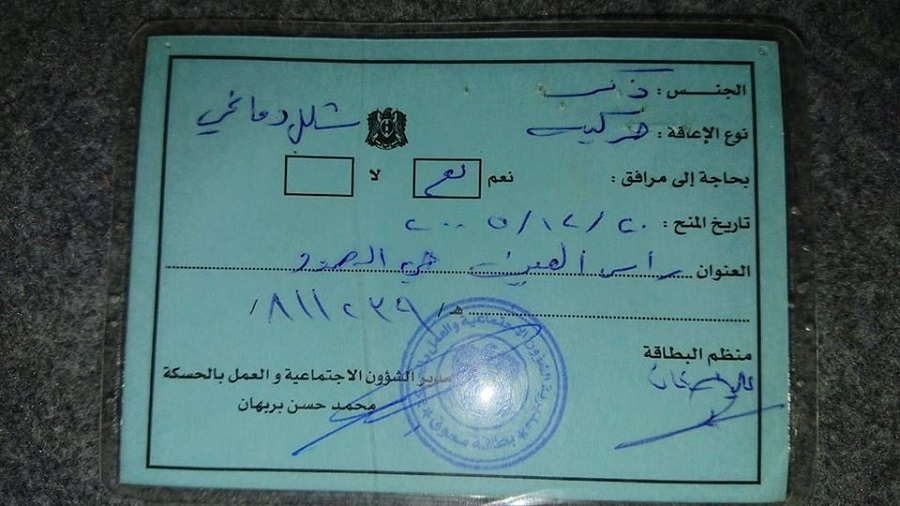 الجنس : ذكر
نوع الإعاقة : حركية شلل دماغي
بحاجة إلى مرافق : نعم نعم لا
تاريخ المنح : ٢٠/١٢/٢٠٠٥
العنوان رأس العين حي
هـ / ٨١١٢٣٩ /
منظم البطاقة
مدير الشؤون الاجتماعية و العمل بالحسكة
محمد حسن بريهان
بطاقة معوق